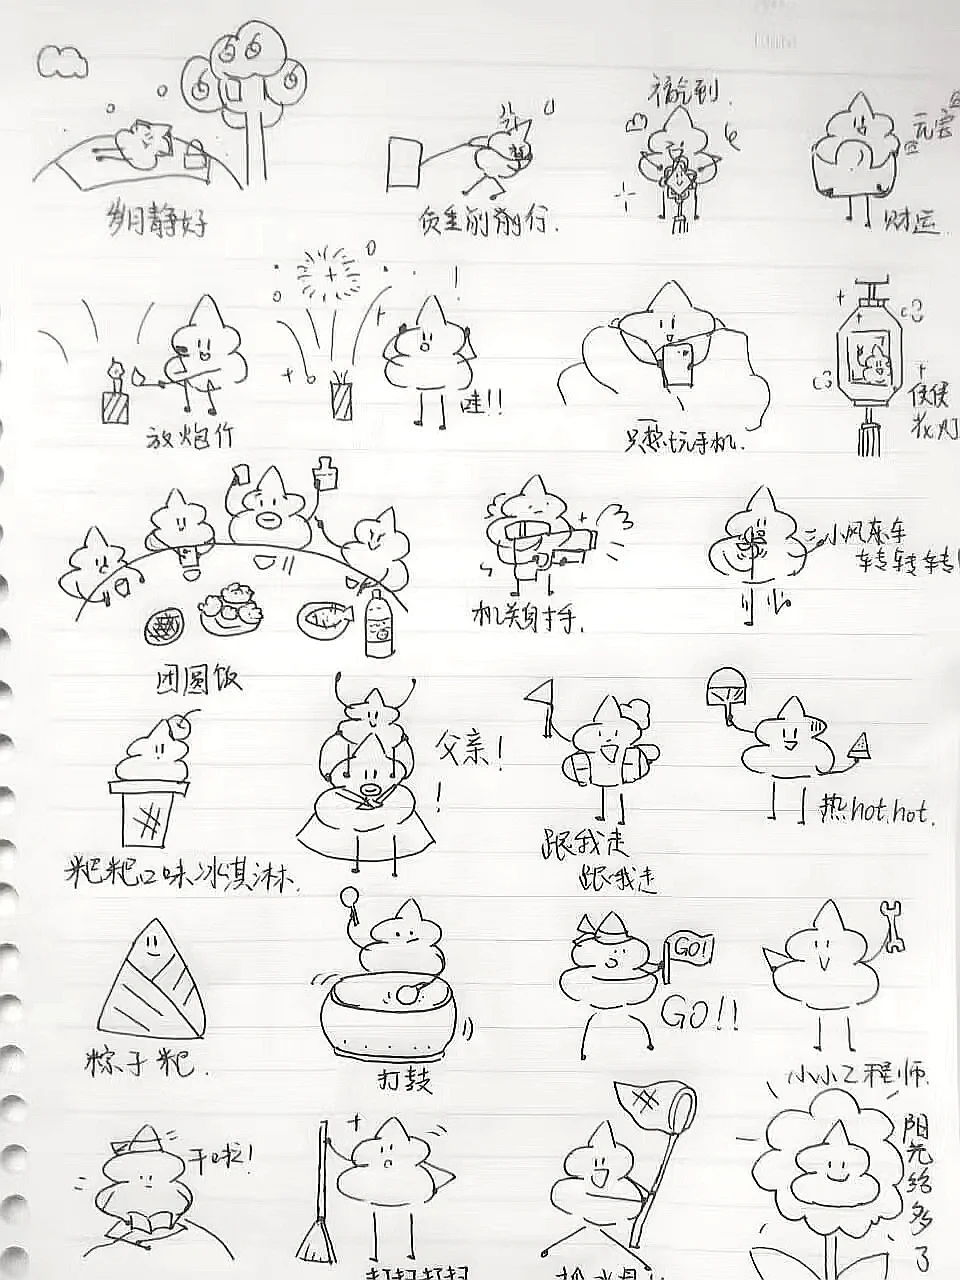 岁月静好
负重前前行.
福气到.
元宝
财运
放炮竹
哇!!
!
只想玩手机.
便便
花灯
团圆饭
机关射手.
小风东车
转转转!
粑粑口味冰淇淋.
父亲!
!
跟我走
跟我走
热hot.hot.
粽子粑.
打鼓
GO!
GO!!
小小工程师.
干啦!
扫扫扫扫
阳光给多了